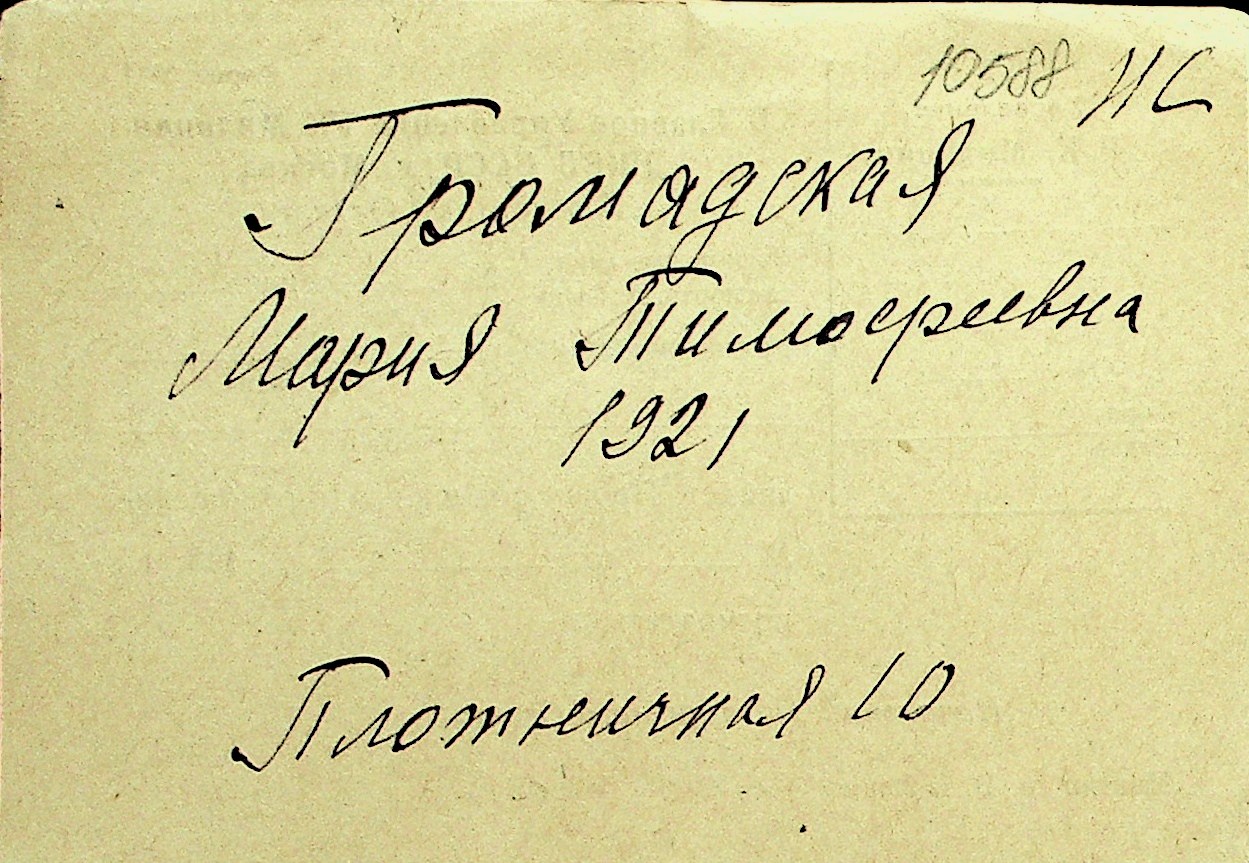 10588 НС
Громадская
Мария Тимофеевна
1921
Плотничная 10